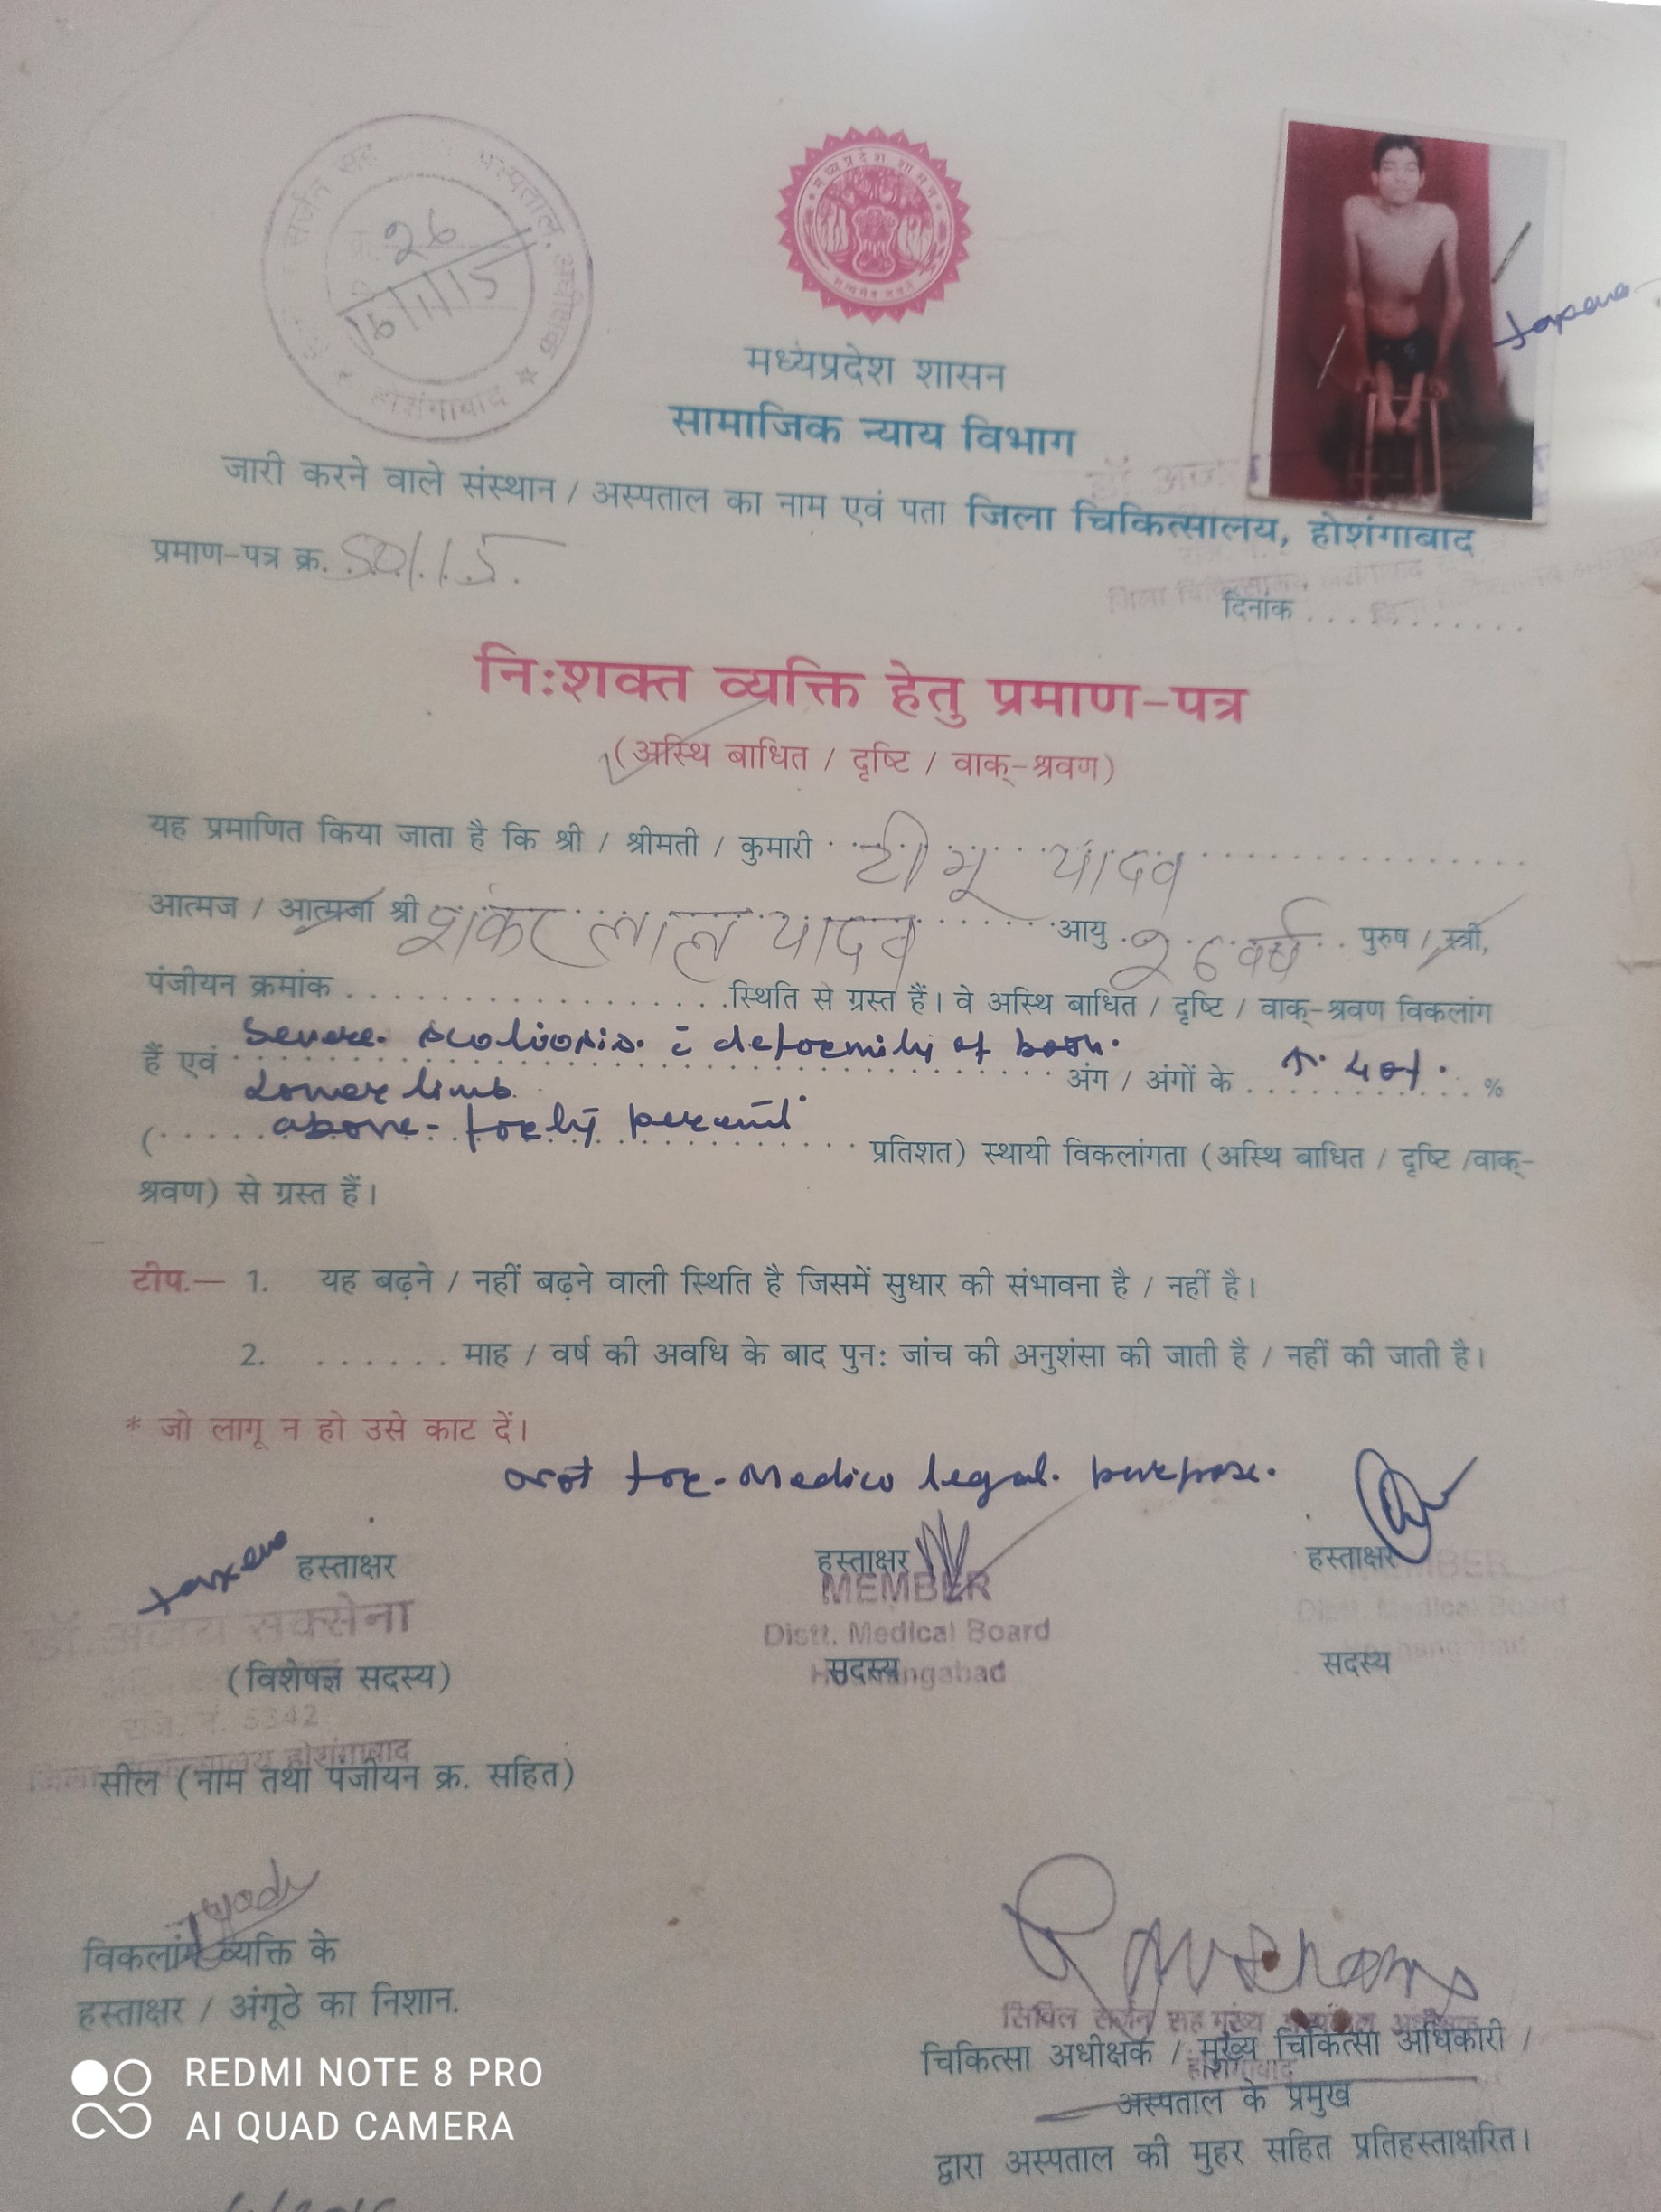 सर्जन सह अस्पताल, अधीक्षक
26
16/1/15
होशंगाबाद
मध्यप्रदेश शासन
सत्यमेव जयते
मध्यप्रदेश शासन
सामाजिक न्याय विभाग
जारी करने वाले संस्थान / अस्पताल का नाम एवं पता जिला चिकित्सालय, होशंगाबाद
प्रमाण-पत्र क्र.
दिनांक
निःशक्त व्यक्ति हेतु प्रमाण-पत्र
(अस्थि बाधित / दृष्टि / वाक्-श्रवण)
यह प्रमाणित किया जाता है कि श्री / श्रीमती / कुमारी टीमू यादव
आत्मज / आत्मजा श्री शंकर लाल यादव आयु 26 वर्ष पुरुष / स्त्री,
पंजीयन क्रमांक स्थिति से ग्रस्त हैं। वे अस्थि बाधित / दृष्टि / वाक्-श्रवण विकलांग
हैं एवं Severe scoliosis c̄ deformity of both अंग / अंगों के ↑ 40% %
Lower limb
(above forty percent प्रतिशत) स्थायी विकलांगता (अस्थि बाधित / दृष्टि /वाक्-
श्रवण) से ग्रस्त हैं।
टीप.— 1. यह बढ़ने / नहीं बढ़ने वाली स्थिति है जिसमें सुधार की संभावना है / नहीं है।
2. ...... माह / वर्ष की अवधि के बाद पुनः जांच की अनुशंसा की जाती है / नहीं की जाती है।
* जो लागू न हो उसे काट दें।
Not for Medico legal purpose.
हस्ताक्षर हस्ताक्षर हस्ताक्षर
MEMBER MEMBER
डॉ. अजय सक्सेना Distt. Medical Board Distt. Medical Board
(विशेषज्ञ सदस्य) सदस्य सदस्य
Hoshangabad
रजि. नं. 5342
जिला चिकित्सालय होशंगाबाद
सील (नाम तथा पंजीयन क्र. सहित)
विकलांग व्यक्ति के
हस्ताक्षर / अंगूठे का निशान.
सिविल सर्जन सह मुख्य अस्पताल अधीक्षक
होशंगाबाद
चिकित्सा अधीक्षक / मुख्य चिकित्सा अधिकारी /
अस्पताल के प्रमुख
द्वारा अस्पताल की मुहर सहित प्रतिहस्ताक्षरित।
REDMI NOTE 8 PRO
AI QUAD CAMERA